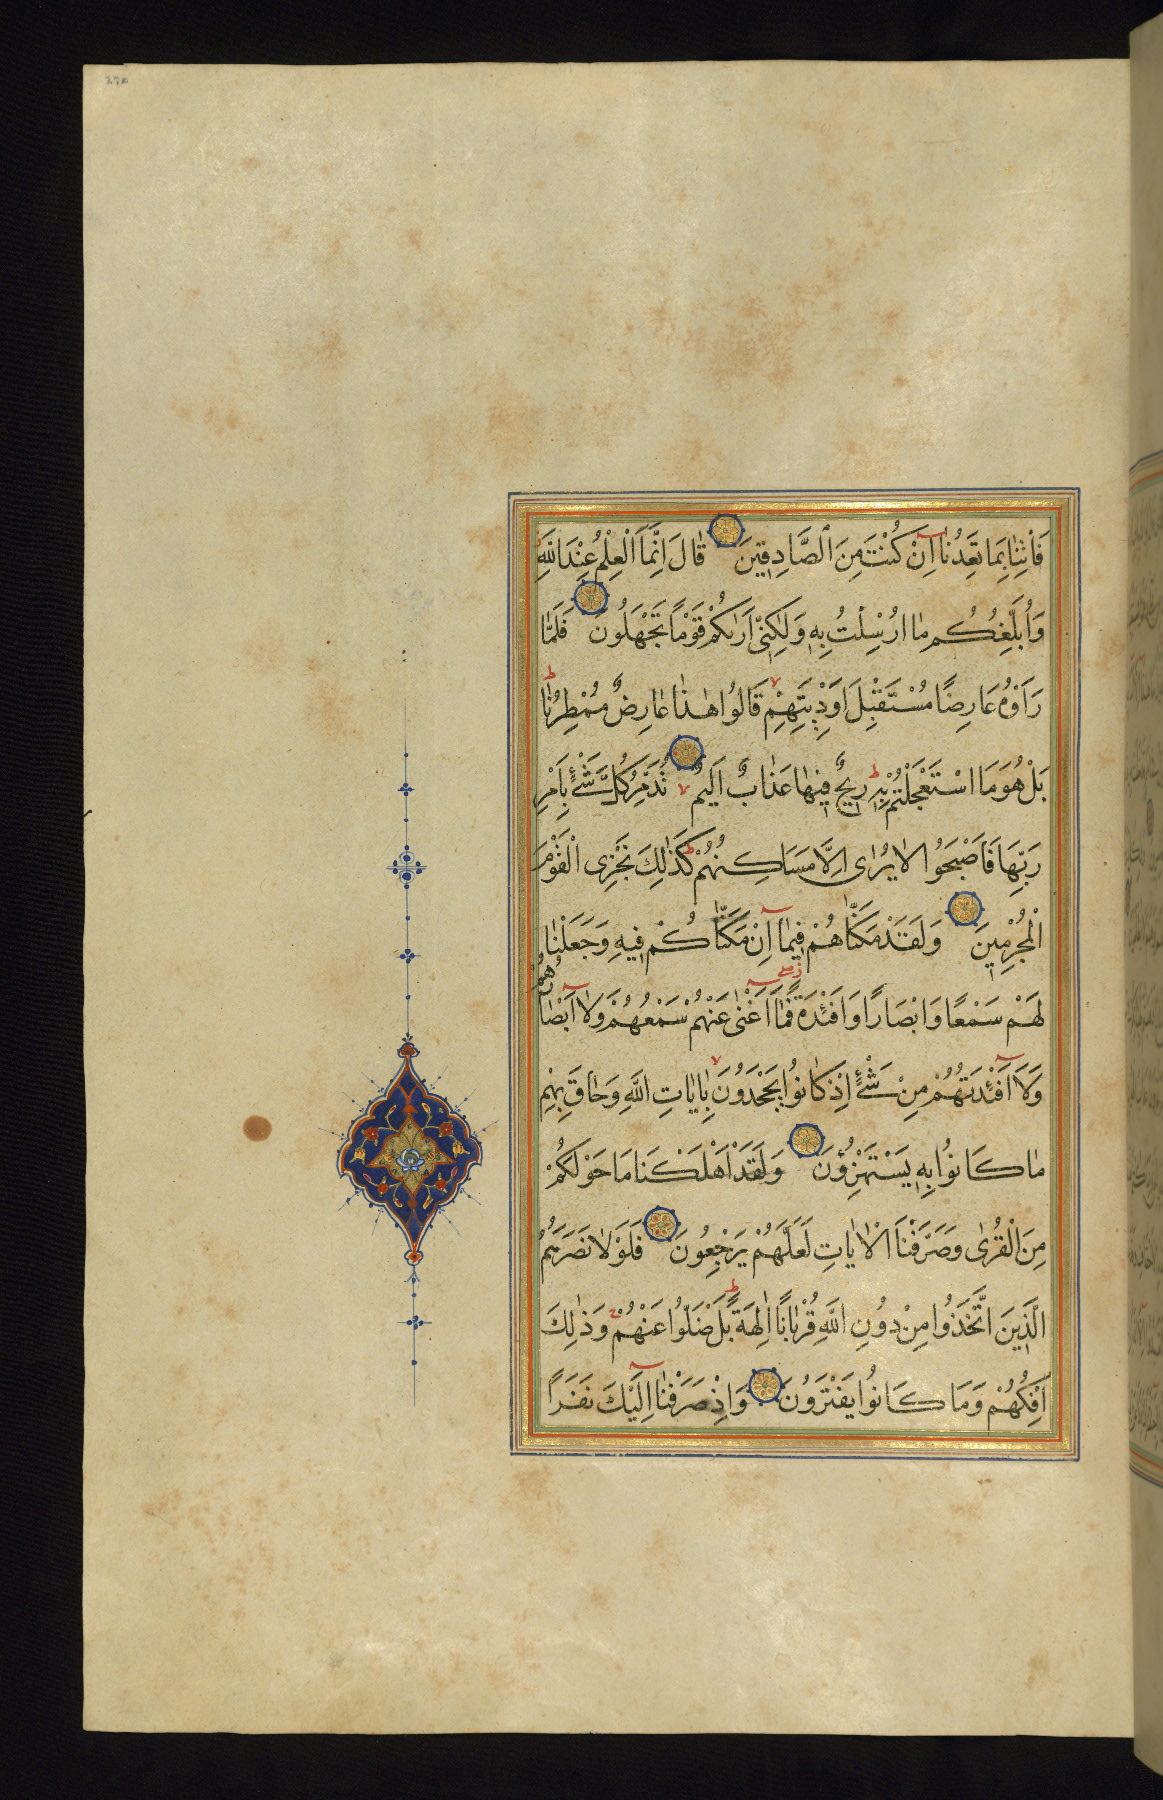 فَأْتِنَا بِمَا تَعِدُنَا اِنْ كُنْتَ مِنَ الصَّادِقِينَ قَالَ اِنَّمَا الْعِلْمُ عِنْدَ اللَّهِ
وَاُبَلِّغُكُمْ مَا اُرْسِلْتُ بِهِ وَلٰكِنِّى اَرٰىكُمْ قَوْمًا تَجْهَلُونَ فَلَمَّا
رَاَوْهُ عَارِضًا مُسْتَقْبِلَ اَوْدِيَتِهِمْ قَالُوا هٰذَا عَارِضٌ مُمْطِرُنَا
بَلْ هُوَ مَا اسْتَعْجَلْتُمْ بِهِ رِيحٌ فِيهَا عَذَابٌ اَلِيمٌ تُدَمِّرُ كُلَّ شَىْءٍ بِاَمْرِ
رَبِّهَا فَاَصْبَحُوا لَا يُرٰى اِلَّا مَسَاكِنُهُمْ كَذٰلِكَ نَجْزِى الْقَوْمَ
الْمُجْرِمِينَ وَلَقَدْ مَكَّنَّاهُمْ فِيمَا اِنْ مَكَّنَّاكُمْ فِيهِ وَجَعَلْنَا
لَهُمْ سَمْعًا وَاَبْصَارًا وَاَفْئِدَةً فَمَا اَغْنٰى عَنْهُمْ سَمْعُهُمْ وَلَا اَبْصَارُهُمْ
وَلَا اَفْئِدَتُهُمْ مِنْ شَىْءٍ اِذْ كَانُوا يَجْحَدُونَ بِاٰيَاتِ اللَّهِ وَحَاقَ بِهِمْ
مَا كَانُوا بِهِ يَسْتَهْزِؤُنَ وَلَقَدْ اَهْلَكْنَا مَا حَوْلَكُمْ
مِنَ الْقُرٰى وَصَرَّفْنَا الْاٰيَاتِ لَعَلَّهُمْ يَرْجِعُونَ فَلَوْلَا نَصَرَهُمُ
الَّذِينَ اتَّخَذُوا مِنْ دُونِ اللَّهِ قُرْبَانًا اٰلِهَةً بَلْ ضَلُّوا عَنْهُمْ وَذٰلِكَ
اِفْكُهُمْ وَمَا كَانُوا يَفْتَرُونَ وَاِذْ صَرَفْنَا اِلَيْكَ نَفَرًا